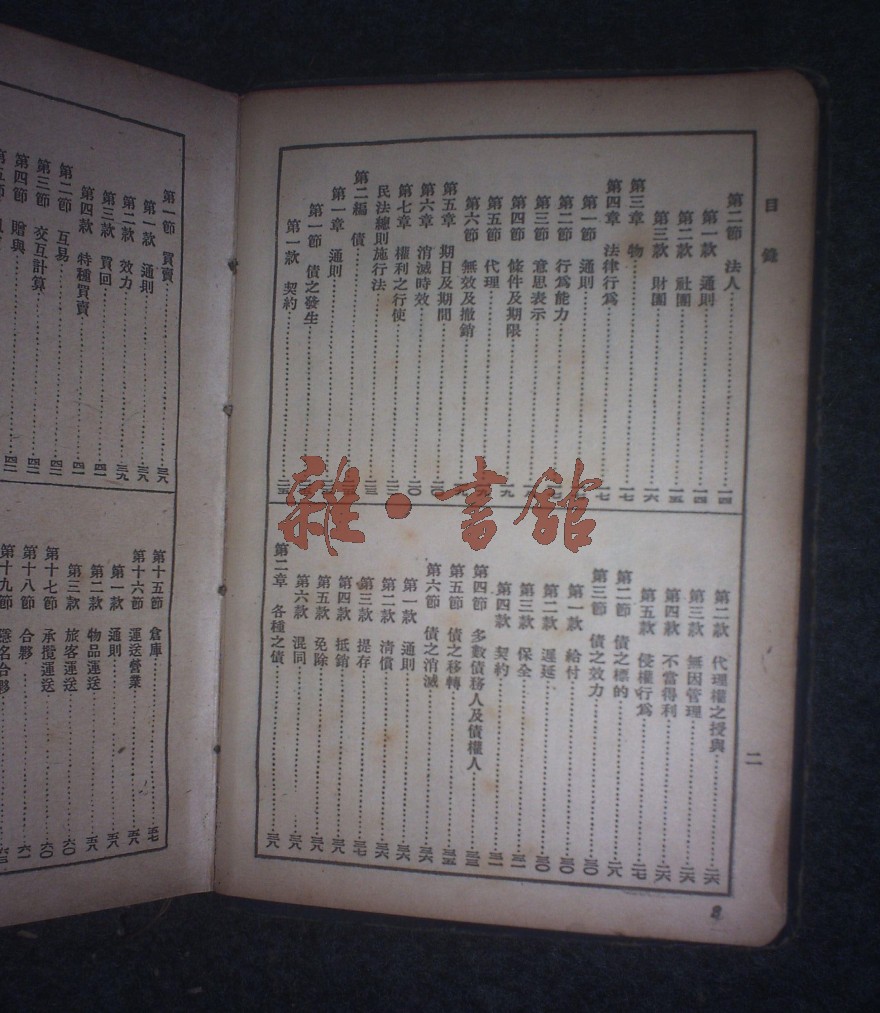 目錄
第二節 法人 一四
第一款 通則 一四
第二款 社團 一五
第三款 財團 一六
第三章 物 一七
第四章 法律行爲
第一節 通則
第二節 行爲能力
第三節 意思表示
第四節 條件及期限
第五節 代理
第六節 無效及撤銷
第五章 期日及期間
第六章 消滅時效
第七章 權利之行使
民法總則施行法
第二編 債
第一章 通則
第一節 債之發生
第一款 契約
第二款 代理權之授與 二六
第三款 無因管理 二六
第四款 不當得利 二六
第五款 侵權行爲 二七
第二節 債之標的 二八
第三節 債之效力 三〇
第一款 給付 三〇
第二款 遲延 三〇
第三款 保全 三一
第四款 契約 三一
第四節 多數債務人及債權人 三三
第五節 債之移轉 三五
第六節 債之消滅 三六
第一款 通則 三六
第二款 清償 三六
第三款 提存 三七
第四款 抵銷 三八
第五款 免除 三八
第六款 混同 三八
第二章 各種之債 三八
二
第一節 買賣 三八
第一款 通則 三八
第二款 效力 三九
第三款 買回 四一
第四款 特種買賣 四一
第二節 互易 四二
第三節 交互計算 四二
第四節 贈與 四二
第五節
第十五節 倉庫 五七
第十六節 運送營業 五八
第一款 通則 五八
第二款 物品運送 五八
第三款 旅客運送 六〇
第十七節 承攬運送 六〇
第十八節 合夥 六一
第十九節 隱名合夥 六三
雜·書館